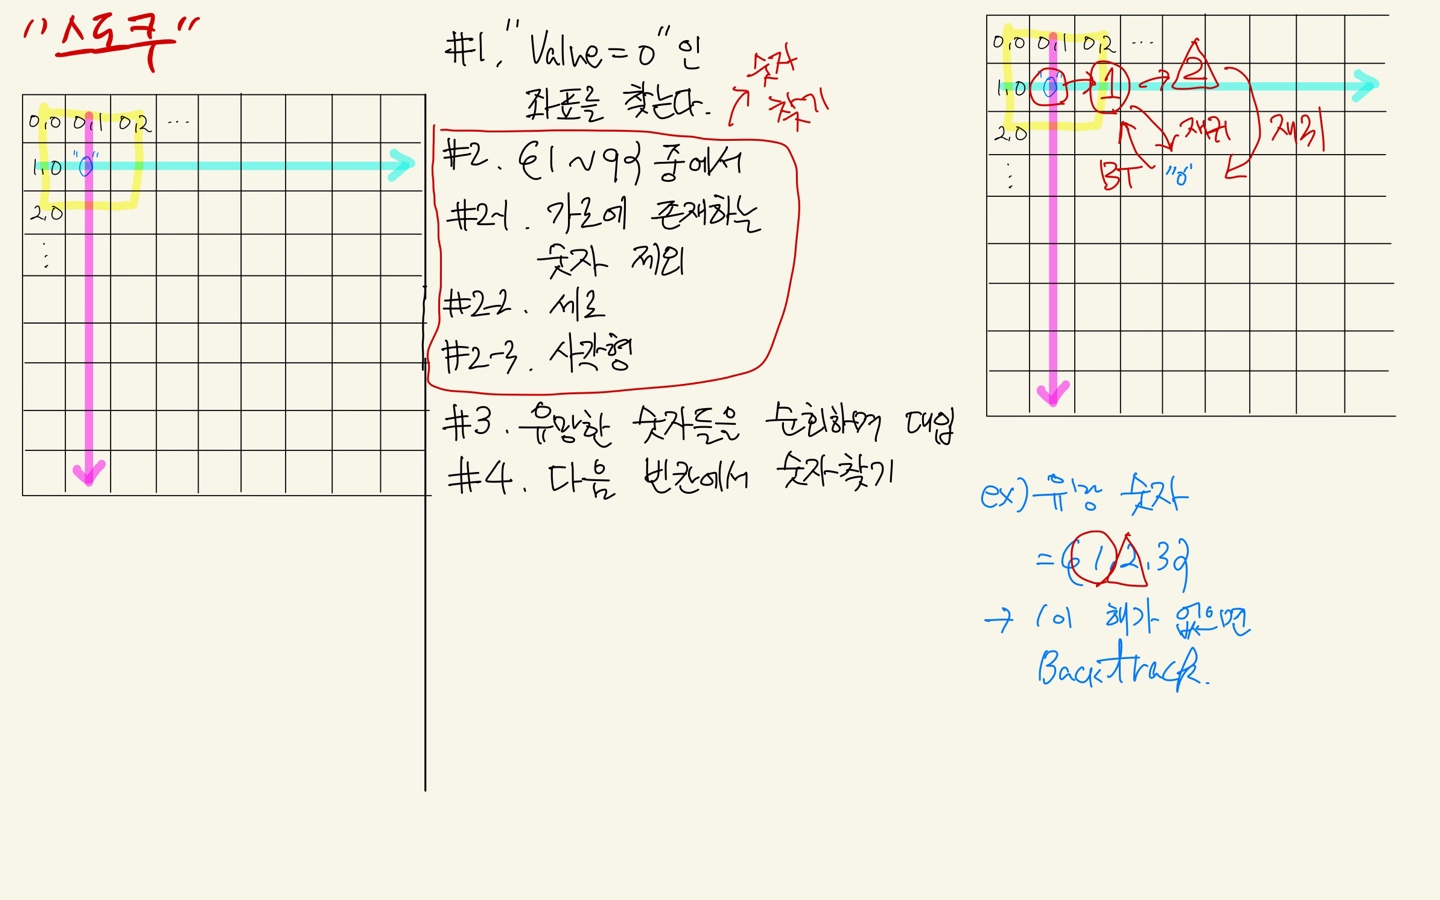 "스도쿠"
0,0 0,1 0,2 ...
1,0 "0"
2,0
#1. "Value = 0" 인
좌표를 찾는다.
숫자
찾기
#2. {1 ~ 9} 중에서
#2-1. 가로에 존재하는
숫자 제외
#2-2. 세로
#2-3. 사각형
#3. 유망한 숫자들을 순회하며 대입
#4. 다음 빈칸에서 숫자찾기
0,0 0,1 0,2 ...
1,0 "0" → 1 → 2
2,0
재귀
재귀
BT "0"
ex) 유망 숫자
= { 1, 2, 3 }
→ 1이 해가 없으면
Backtrack.